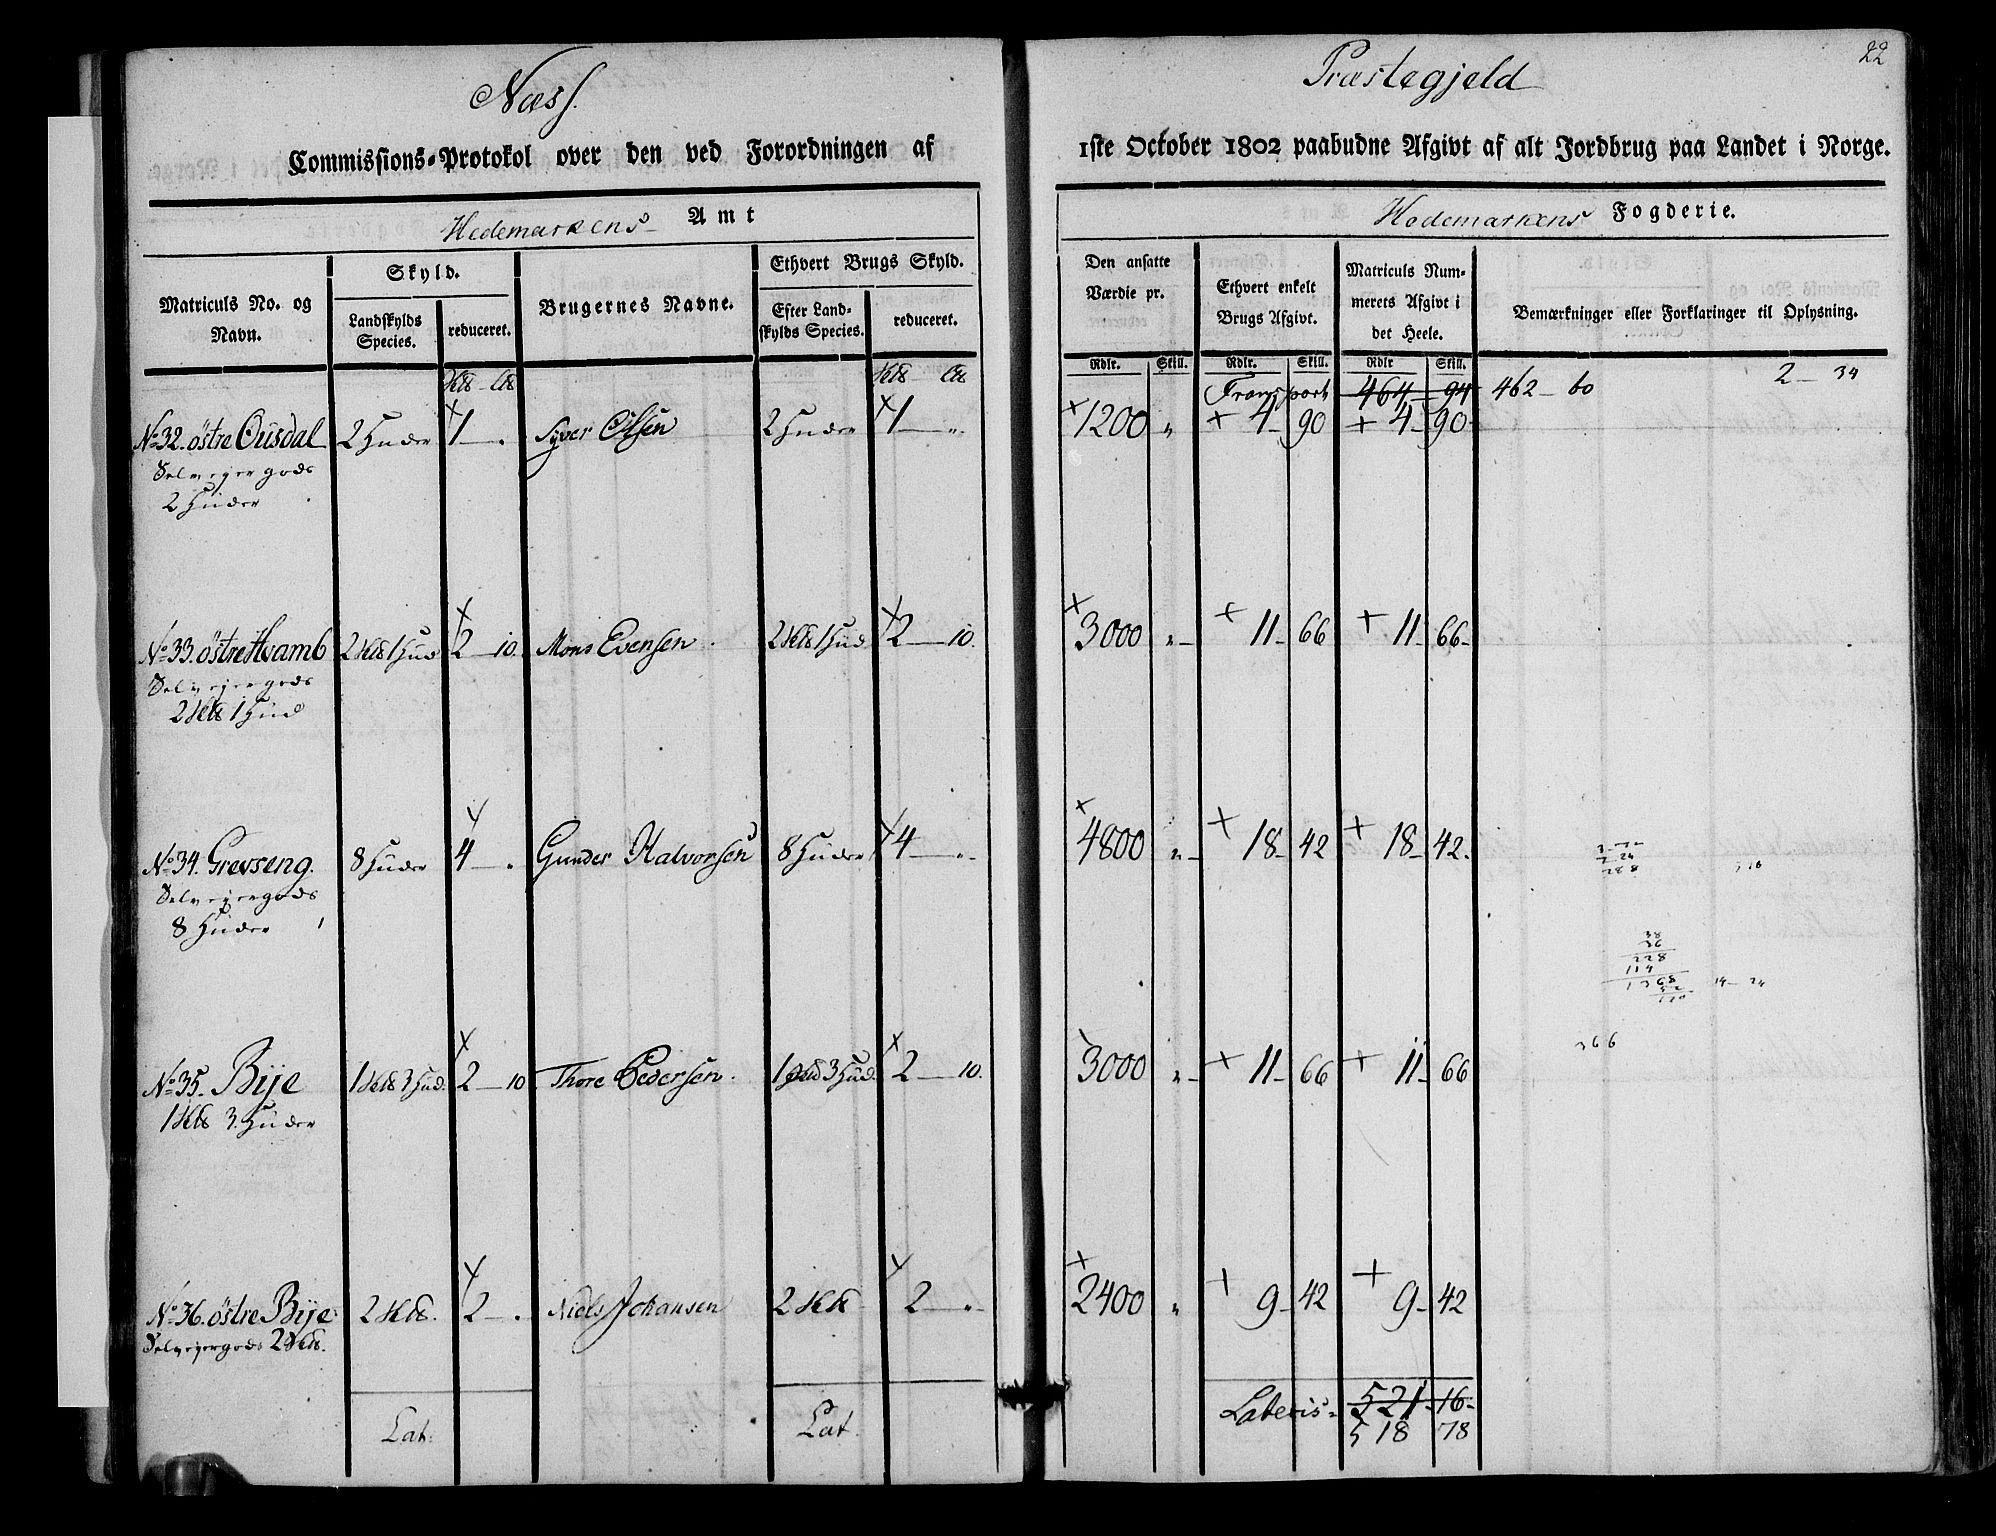 Næss. Præstegjeld 22
Commissions-Protokol over den ved Forordningen af 1ste October 1802 paabudne Afgivt af alt Jordbrug paa Landet i Norge.
Hedemarkens Amt Hedemarkens Fogderie.
Matriculs No. og Navn.
Skyld.
Landskylds Species.
reduceret.
Brugernes Navne.
Ethvert Brugs Skyld.
Efter Landskylds Species.
reduceret.
Den ansatte Værdie pr.
Ethvert enkelt Brugs Afgivt.
Matriculs Nummerets Afgivt i det Heele.
Bemærkninger eller Forklaringer til Oplysning.
Rdlr. Skill. Rdlr. Skill. Rdlr Skill.
Transport 464 - 94 462 - 60 2 - 34
No 32. østre Ousdal 2 Huder 1 - „ Syver Olsen 2 Huder 1 - „ 1200 „ 4 - 90 4 - 90
Selveyergods
2 Huder
No 33. østre Hvamb 2 1 Hud 2 - 10. Mons Evensen. 2 1 Hud 2 - 10. 3000 „ - 11 - 66 11 - 66 -
Selveyergods
2 1 Hud
No 34. Grevseng. 8 Huder 4 - „ Gunder Halvorsen 8 Huder 4 - „ 4800 „ - 18 - 42 18 - 42.
Selveyergods
8 Huder
288
38
36
228
114
1368
No 35. Bije 1 3 Hud. 2 - 10 Thore Pedersen. 1 3 Hud. 2 - 10. 3000 „ - 11 - 66 11 - 66
366
1 3. Huder
No 36. østre Bije 2 2 - „ Niels Johansen 2 2 - „ 2400 „ 9 - 42 9 - 42
Selveyergods 2
Lat: Lat. Lateris 521 - 16
518 78